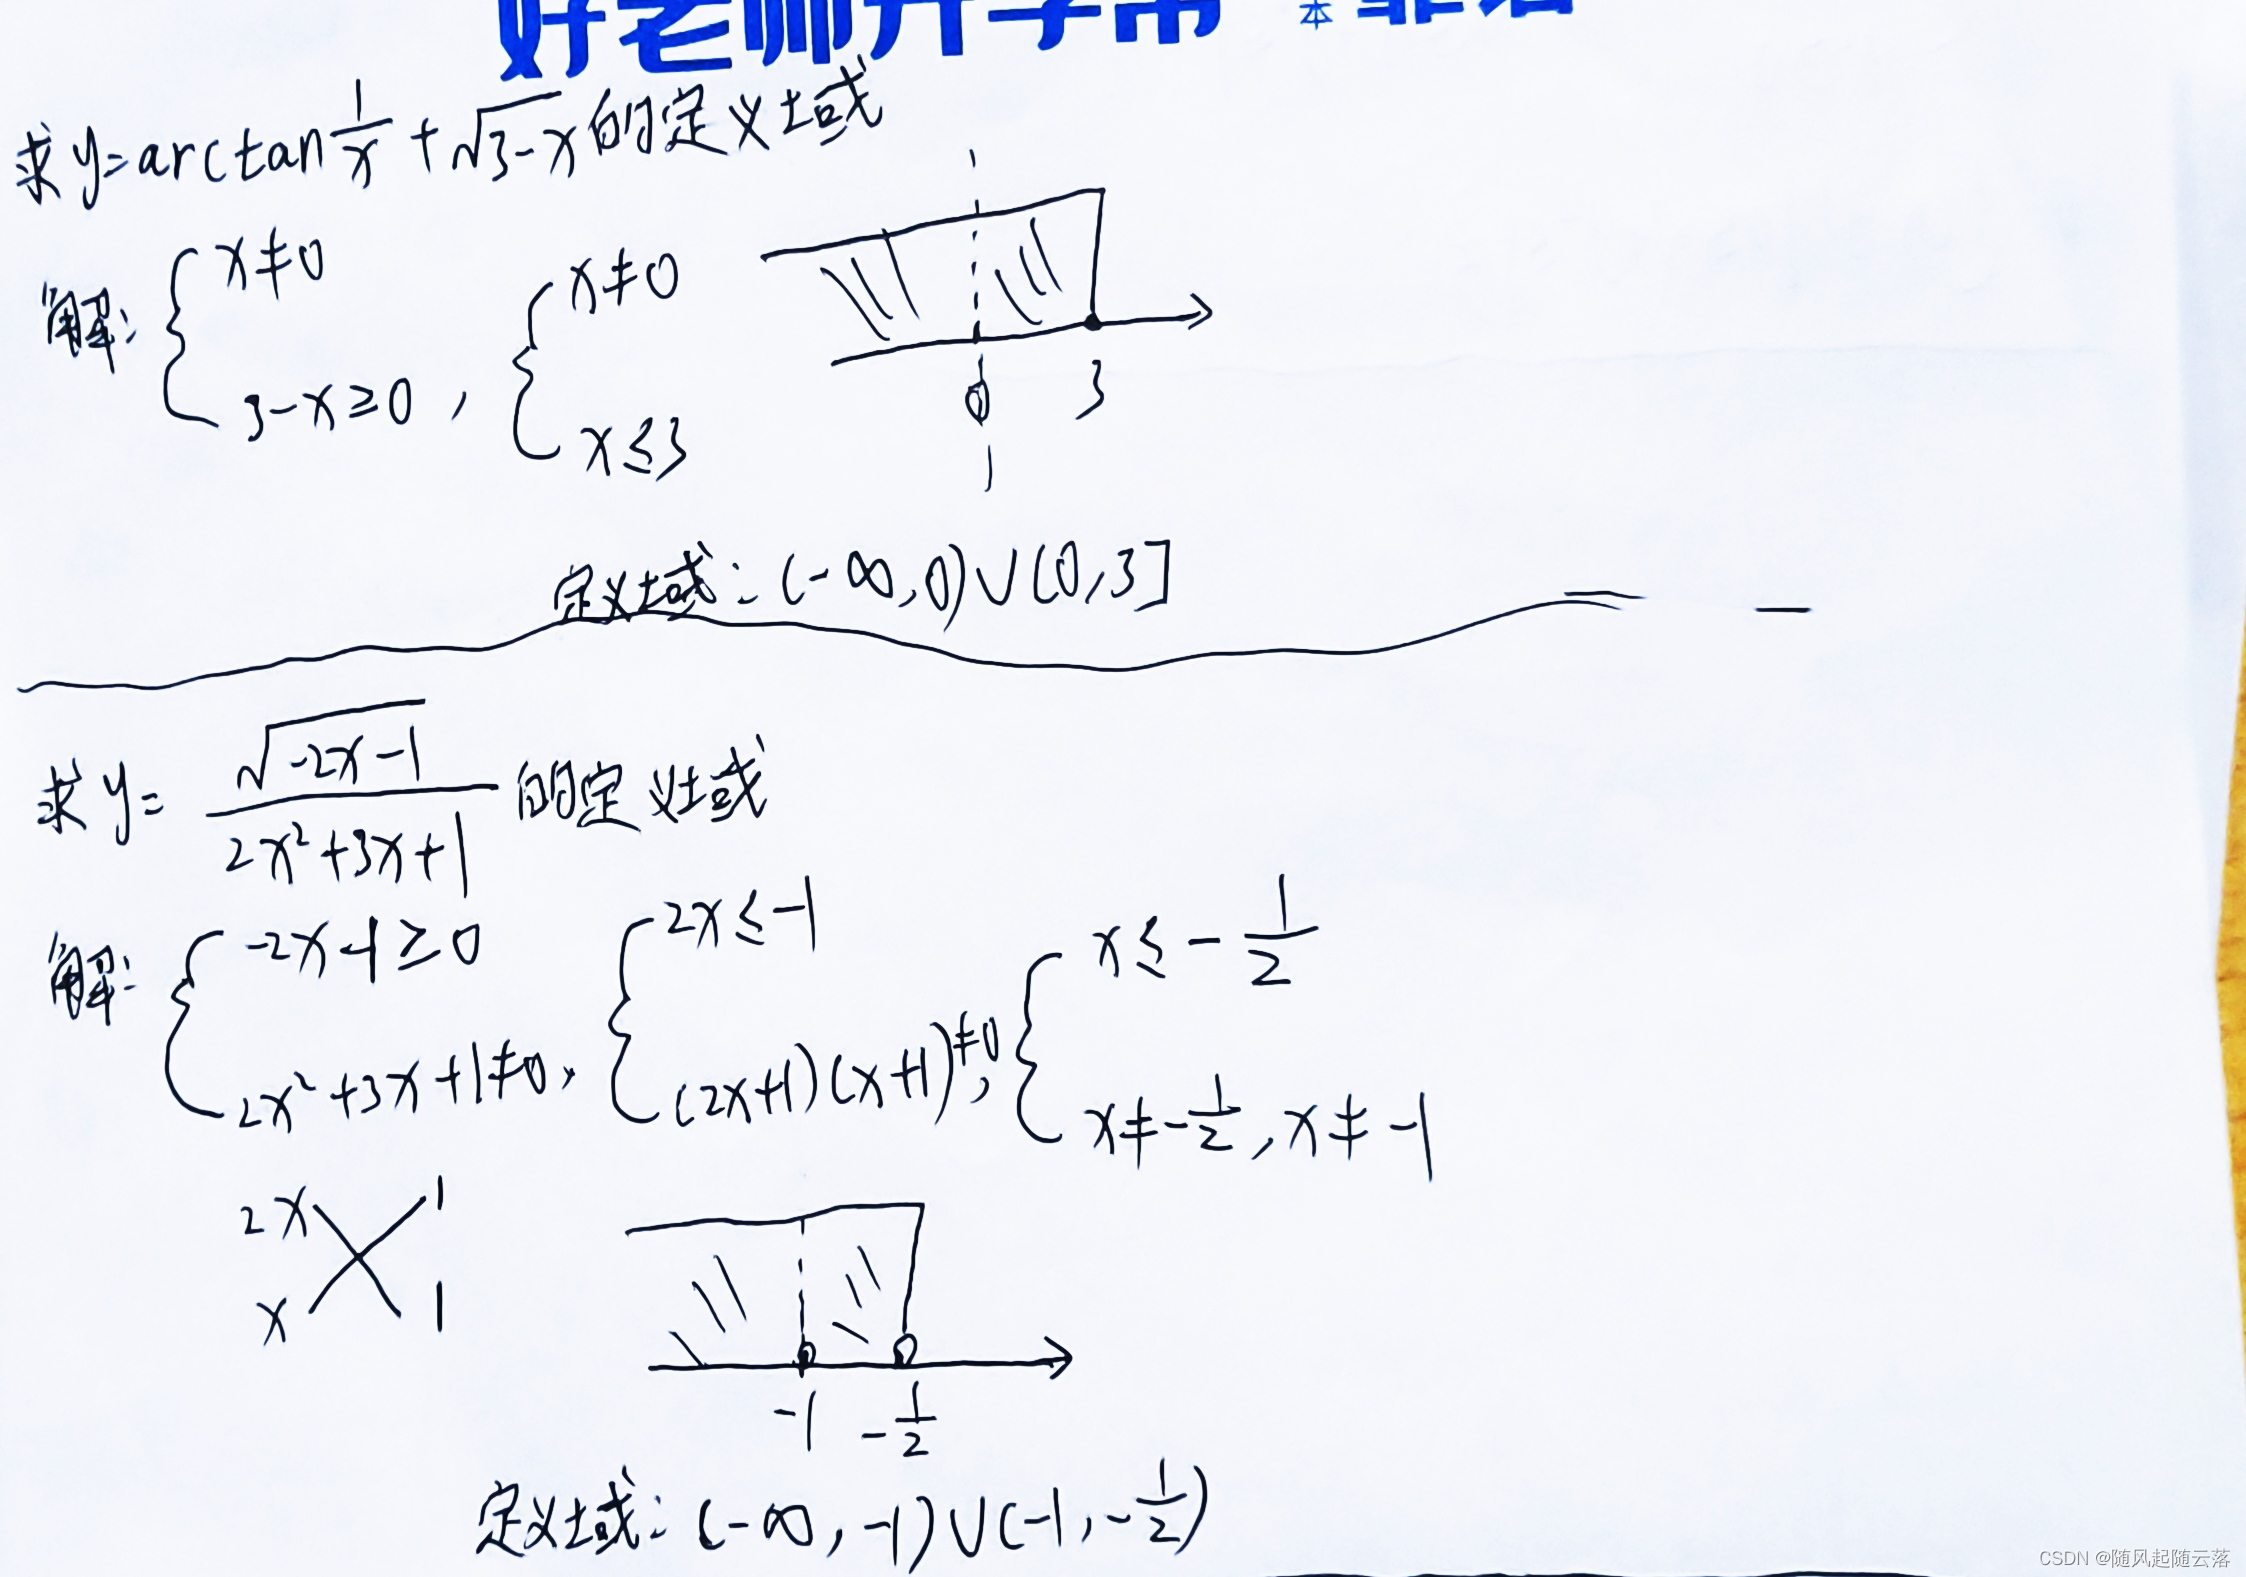 求y=arctan 1/x + √3-x 的定义域
解: { x≠0 3-x≥0 , { x≠0 x≤3
0 3
定义域: (-∞,0)∪(0,3]
求y= √-2x-1 / 2x²+3x+1 的定义域
解: { -2x-1≥0 2x²+3x+1≠0, { 2x≤-1 (2x+1)(x+1)≠0, { x≤-1/2 x≠-1/2, x≠-1
2x 1
x 1
-1 -1/2
定义域: (-∞,-1)∪(-1,-1/2)
CSDN @随风起随云落